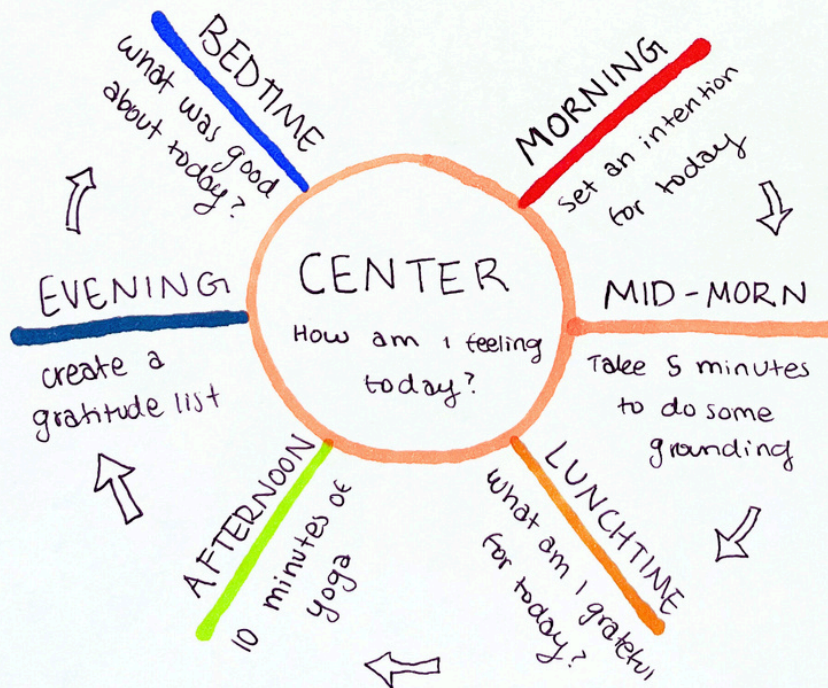 CENTER
How am i feeling
today?
MORNING
Set an intention
for today
MID-MORN
Take 5 minutes
to do some
grounding
LUNCHTIME
What am I grateful
for today?
AFTERNOON
10 minutes of
yoga
EVENING
create a
gratitude list
BEDTIME
what was good
about today?